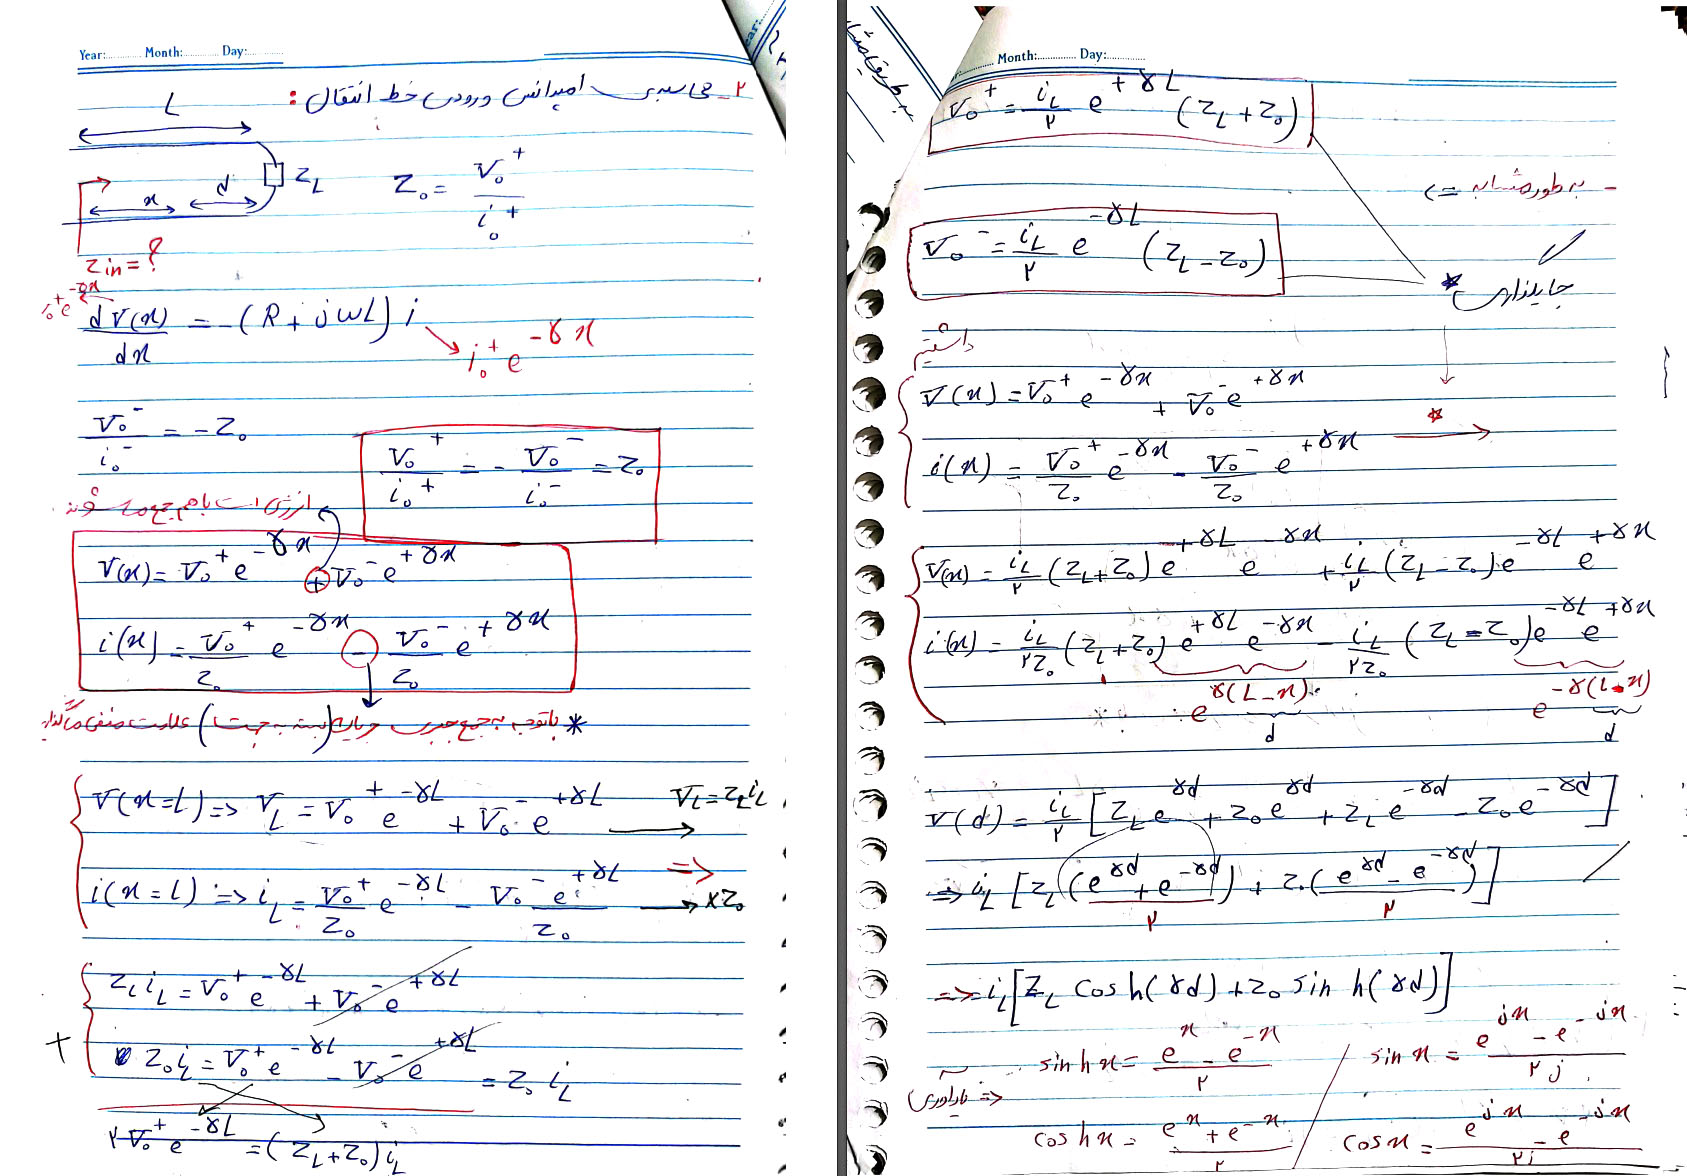 Year:......... Month:............ Day:............
۲ـ محاسبه‌ی امپدانس ورودی خط انتقال :
L
Z_L
x d
Z_in = ?
Z_0 = V_0^+ / i_0^+
dV(x)/dx = -(R + jωL) i
i_0^+ e^{-γx}
V_0^- / i_0^- = -Z_0
V_0^+ / i_0^+ = - V_0^- / i_0^- = Z_0
انرژی است با هم جمع می شوند
V(x) = V_0^+ e^{-γx} + V_0^- e^{+γx}
i(x) = V_0^+/Z_0 e^{-γx} - V_0^-/Z_0 e^{+γx}
* با توجه به جمع جبری جریان (بسته به جهت) علامت منفی
V(x=L) => V_L = V_0^+ e^{-γL} + V_0^- e^{+γL} → V_L = Z_L i_L
i(x=L) => i_L = V_0^+/Z_0 e^{-γL} - V_0^- e^{+γL}/Z_0 => → × Z_0
Z_L i_L = V_0^+ e^{-γL} + V_0^- e^{+γL}
+
Z_0 i_L = V_0^+ e^{-γL} - V_0^- e^{+γL} = Z_0 i_L
۲V_0^+ e^{-γL} = (Z_L + Z_0) i_L
Month:............ Day:............
V_0^+ = i_L/۲ e^{+γL} (Z_L + Z_0)
ـ به طور مشابه =>
V_0^- = i_L/۲ e^{-γL} (Z_L - Z_0)
* جایگذاری
داشتیم
V(x) = V_0^+ e^{-γx} + V_0^- e^{+γx}
*
i(x) = V_0^+/Z_0 e^{-γx} - V_0^-/Z_0 e^{+γx} →
V(x) = i_L/۲ (Z_L + Z_0) e^{+γL} e^{-γx} + i_L/۲ (Z_L - Z_0) e^{-γL} e^{+γx}
i(x) = i_L/۲Z_0 (Z_L + Z_0) e^{+γL} e^{-γx} - i_L/۲Z_0 (Z_L - Z_0) e^{-γL} e^{+γx}
e^{γ(L-x)} e^{-γ(L-x)}
d d
V(d) = i_L/۲ [Z_L e^{γd} + Z_0 e^{γd} + Z_L e^{-γd} - Z_0 e^{-γd}]
=> i_L [Z_L ((e^{γd} + e^{-γd})/۲) + Z_0 ((e^{γd} - e^{-γd})/۲)]
=> i_L [Z_L cosh(γd) + Z_0 sinh(γd)]
sinhx = (e^x - e^{-x})/۲ / sinx = (e^{jx} - e^{-jx})/۲j
یادآوری =>
coshx = (e^x + e^{-x})/۲ cosx = (e^{jx} - e^{-jx})/۲j